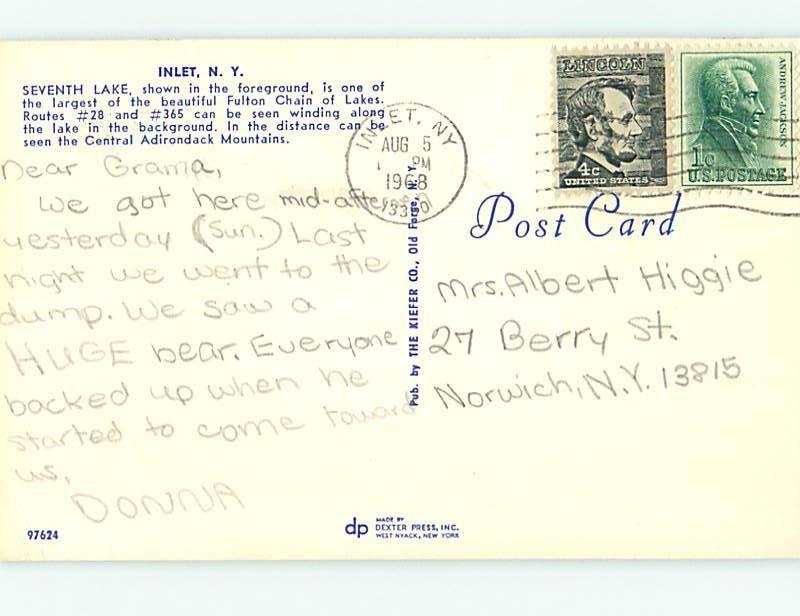 INLET, N. Y.
SEVENTH LAKE, shown in the foreground, is one of
the largest of the beautiful Fulton Chain of Lakes.
Routes #28 and #365 can be seen winding along
the lake in the background. In the distance can be
seen the Central Adirondack Mountains.
Dear Grama,
We got here mid-after
yesterday (Sun.) Last
night we went to the
dump. We saw a
HUGE bear. Everyone
backed up when he
started to come toward
us,
DONNA
97624
INLET, NY
AUG 5
PM
1968
Pub. by THE KIEFER CO., Old Forge, N. Y.
dp
MADE BY
DEXTER PRESS, INC.
WEST NYACK, NEW YORK
LINCOLN
4c
UNITED STATES
ANDREW JACKSON
1c
U.S. POSTAGE
Post Card
Mrs. Albert Higgie
27 Berry St.
Norwich, N.Y. 13815